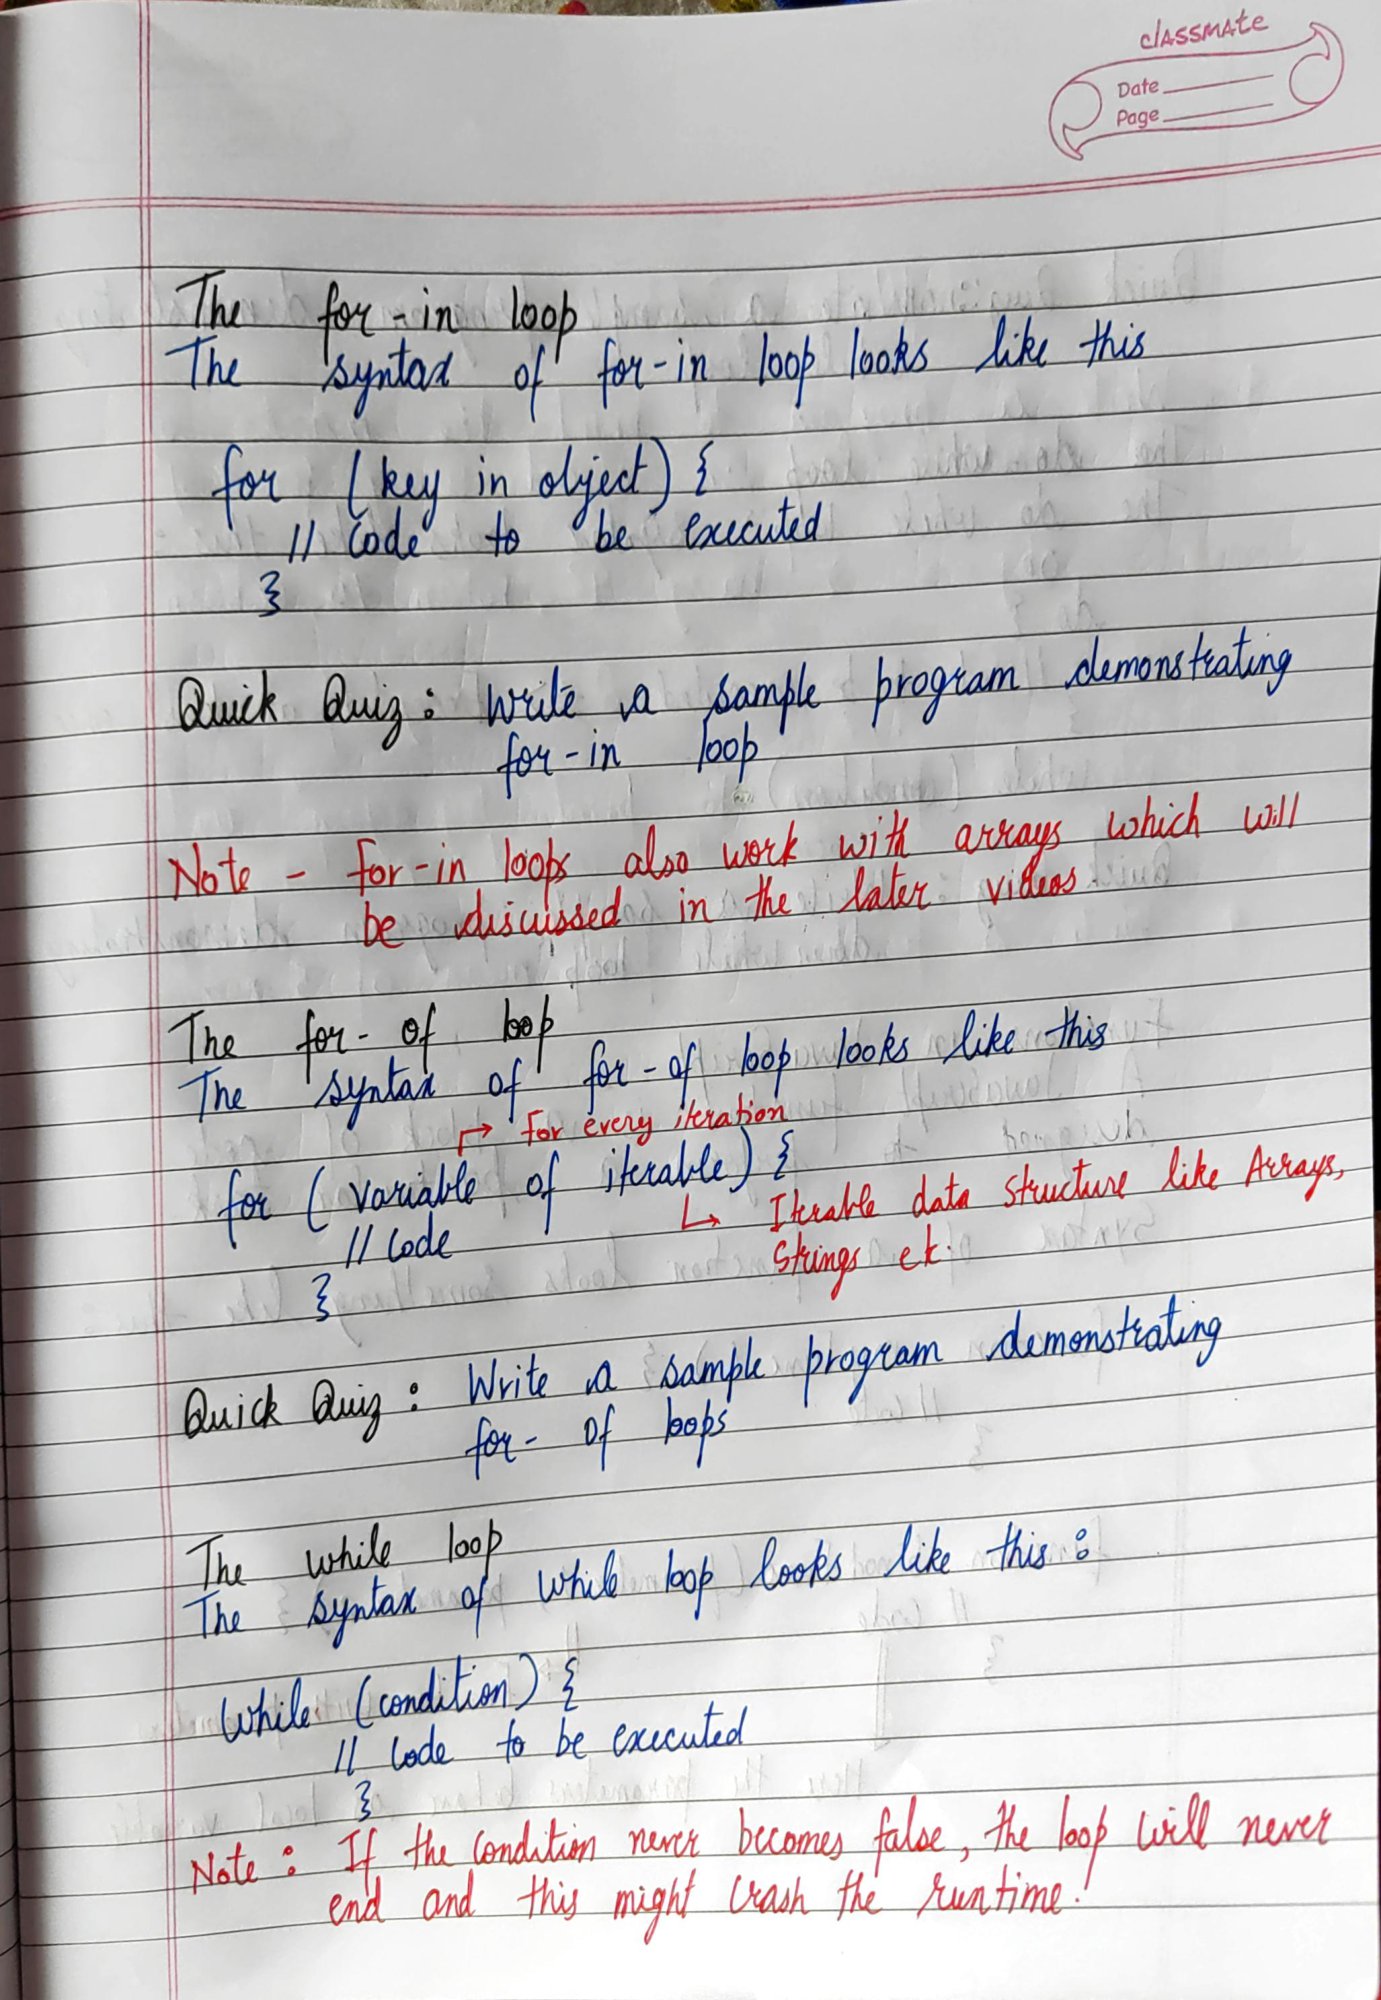 classmate
Date
Page
The for-in loop
The syntax of for-in loop looks like this
for (key in object) {
// Code to be executed
}
Quick Quiz: Write a sample program demonstrating
for-in loop
Note - for-in loops also work with arrays which will
be discussed in the later videos
The for-of loop
The syntax of for-of loop looks like this
↱ for every iteration
for (variable of iterable) {
↳ Iterable data structure like Arrays,
// Code
Strings etc.
}
Quick Quiz: Write a sample program demonstrating
for-of loops
The while loop
The syntax of while loop looks like this:
While (condition) {
// Code to be executed
}
Note: If the condition never becomes false, the loop will never
end and this might crash the runtime!